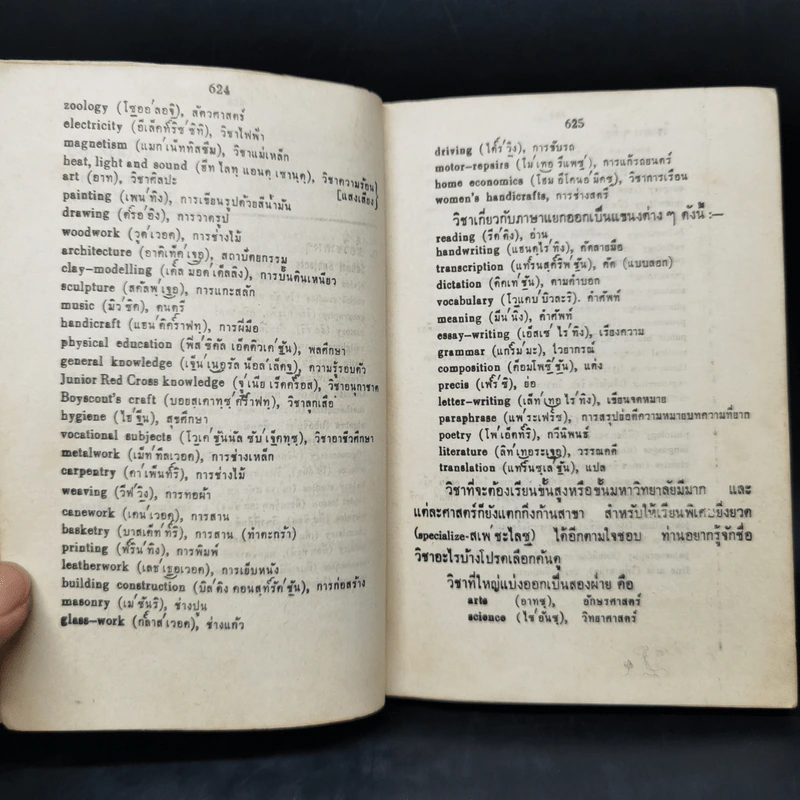 624
zoology (โซออ'ลอจิ), สัตวศาสตร์
electricity (อีเล็คทริซ'ซิทิ), วิชาไฟฟ้า
magnetism (แมก'เน็ททิสซึม), วิชาแม่เหล็ก
heat, light and sound (ฮีท ไลทฺ แอนดฺ เซานฺดฺ), วิชาความร้อน
art (อาท), วิชาศิลปะ [แสงเสียง]
painting (เพน'ทิง), การเขียนรูปด้วยสีน้ำมัน
drawing (ดรอ'อิง), การวาดรูป
woodwork (วุด'เวอค), การช่างไม้
architecture (อาคิเท็ค'เชอ), สถาปัตยกรรม
clay-modelling (เคลฺ มอด'เด็ลลิง), การปั้นดินเหนียว
sculpture (สคัลพฺ'เชอ), การแกะสลัก
music (มิว'ซิค), ดนตรี
handicraft (แฮน'ดิคร๊าฟทฺ), การฝีมือ
physical education (ฟิส'ซิคัล เอ็ดดิวเค'ชัน), พลศึกษา
general knowledge (เจ็น'เนอรัล น็อล'เล็ดจฺ), ความรู้รอบตัว
Junior Red Cross knowledge (จู'เนีย เร็ดคร็อส), วิชาอนุกาชาด
Boyscout's craft (บอยสฺเคาทฺซฺ'คร๊าฟทฺ), วิชาลูกเสือ
hygiene (ไฮ'จีน), สุขศึกษา
vocational subjects (โวเค'ชันนัล ซับ'เจ็คทฺซฺ), วิชาอาชีวศึกษา
metalwork (เม็ท'ทัลเวอค), การช่างเหล็ก
carpentry (คา'เพ็นทริ), การช่างไม้
weaving (วีฟ'วิง), การทอผ้า
canework (เคน'เวอค), การสาน
basketry (บาสเค็ท'ทริ), การสาน (ทำตะกร้า)
printing (พริน'ทิง), การพิมพ์
leatherwork (เลธ'เธอเวอค), การเย็บหนัง
building construction (บิล'ดิง คอนสฺทรัค'ชัน), การก่อสร้าง
masonry (เม'ซันริ), ช่างปูน
glass-work (กลาส'เวอค), ช่างแก้ว
625
driving (ไดร๎'วิง), การขับรถ
motor-repairs (โม'เทอ รีแพซฺ'), การแก้รถยนตร์
home economics (โฮม อีโคนอ'มิคซฺ), วิชาการเรือน
women's handicrafts, การช่างสตรี
วิชาเกี่ยวกับภาษาแยกออกเป็นแขนงต่าง ๆ ดังนี้ :—
reading (รีด'ดิง), อ่าน
handwriting (แฮนดฺไร'ทิง), คัดลายมือ
transcription (แทร็นสคริพ'ชัน), คัด (แบบลอก)
dictation (ดิคเท'ชัน), ตามคำบอก
vocabulary (โวแคบ'บิวละริ). คำศัพท์
meaning (มีน'นิง), คำศัพท์
essay-writing (เอ็สเซ' ไร'ทิง), เรียงความ
grammar (แกร็ม'มะ), ไวยากรณ์
composition (ค็อมโพซิ'ชัน), แต่ง
precis (เพร๎'ซี), ย่อ
letter-writing (เล็ท'เทอ ไร'ทิง), เขียนจดหมาย
paraphrase (แพ'ระเฟรซ), การสรุปข้อตีความหมายบทความที่ยาก
poetry (โพ'เอ็ททริ), กวีนิพนธ์
literature (ลิท'เทอระเชอ), วรรณคดี
translation (แทร็นซฺเล'ชัน), แปล
วิชาที่จะต้องเรียนขั้นสูงหรือขั้นมหาวิทยาลัยมีมาก และ
แต่ละศาสตร์ก็ยังแตกกิ่งก้านสาขา สำหรับให้เรียนพิเศษยิ่งยวด
(specialize-สเพ'ชะไลซฺ) ได้อีกตามใจชอบ ท่านอยากรู้จักชื่อ
วิชาอะไรบ้างโปรดเลือกค้นดู
วิชาที่ใหญ่แบ่งออกเป็นสองฝ่าย คือ
arts (อาทซฺ), อักษรศาสตร์
science (ไซ'อันซฺ), วิทยาศาสตร์